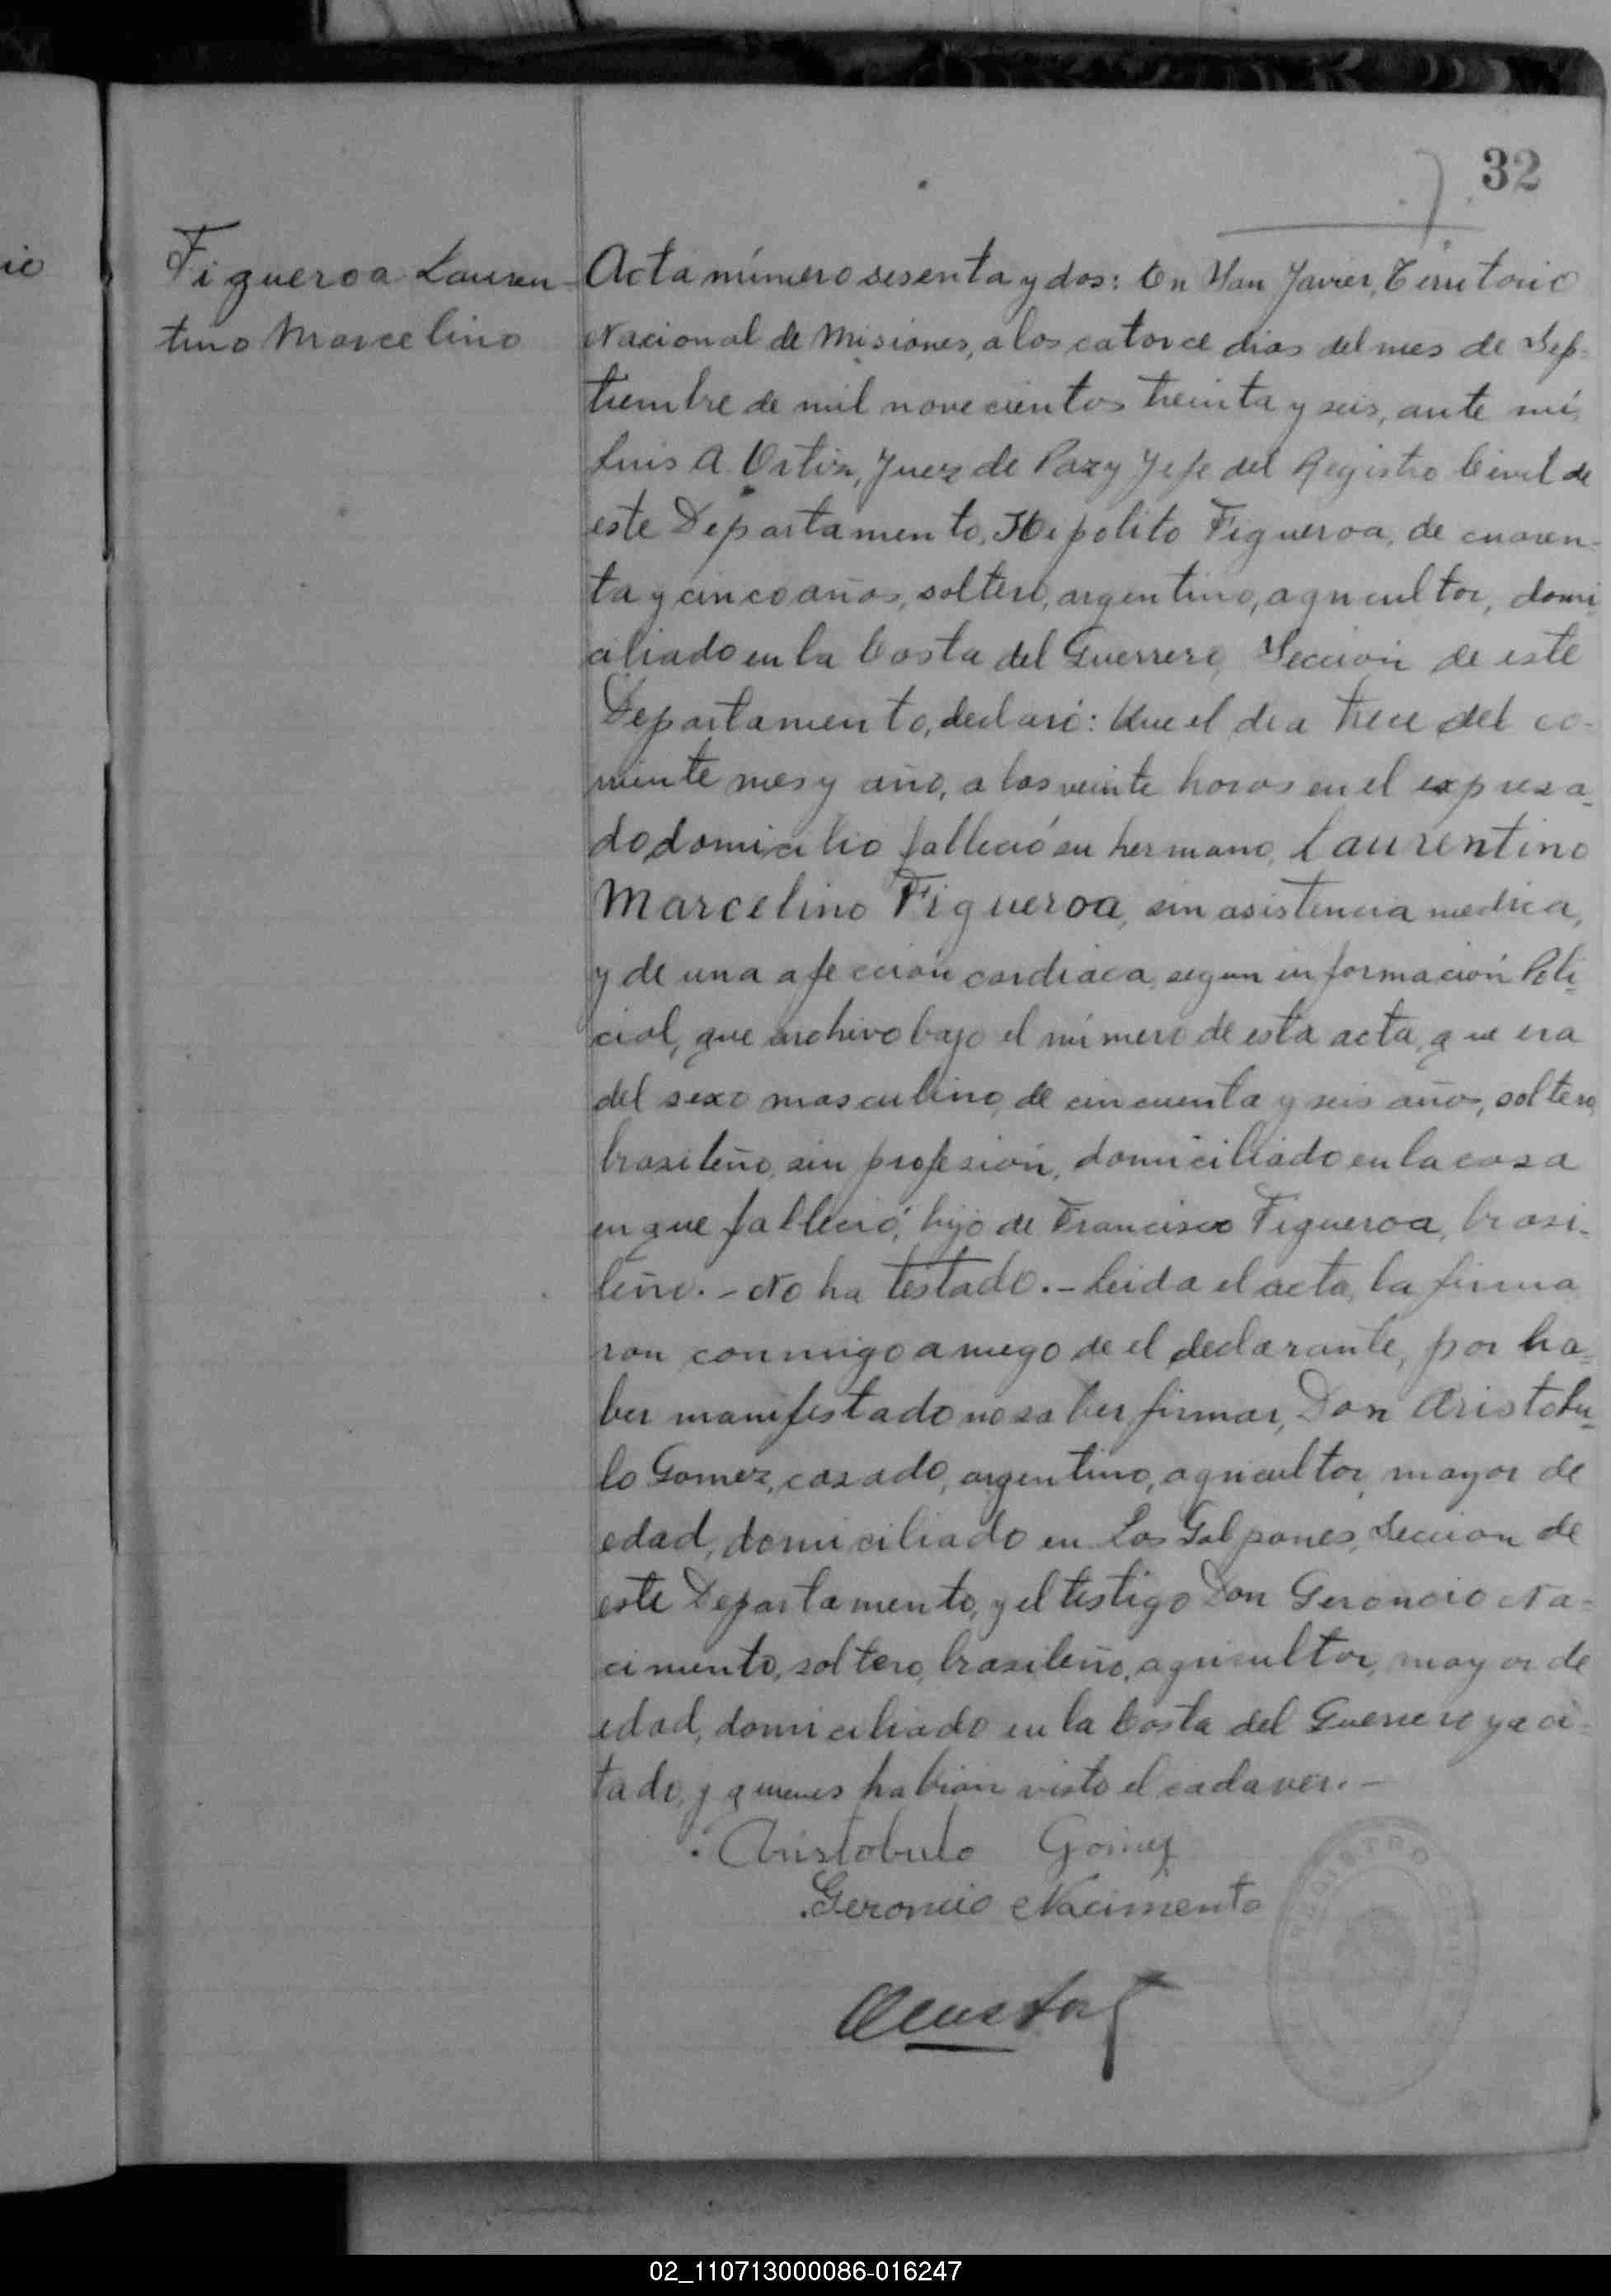 32
io
Figueroa Lauren-
tino Marcelino
Acta número sesenta y dos: En San Javier, Territorio
Nacional de Misiones, a los catorce dias del mes de Sep-
tiembre de mil novecientos treinta y seis, ante mí,
Luis A. Ortiz, Juez de Paz y Jefe del Registro Civil de
este Departamento, Hipolito Figueroa, de cuaren-
ta y cinco años, soltero, argentino, agricultor, domi
ciliado en la Costa del Guerrero, Sección de este
Departamento, declaró: Que el dia trece del co-
rriente mes y año, a las veinte horas en el expresa-
do domicilio falleció su hermano, Laurentino
Marcelino Figueroa, sin asistencia medica,
y de una afección cardiaca, segun información Poli-
cial, que archivo bajo el número de esta acta, que era
del sexo masculino, de cincuenta y seis años, soltero,
brasileño, sin profesión, domiciliado en la casa
en que falleció, hijo de Francisco Figueroa, brasi-
leño. - No ha testado. - Leida el acta, la firma
ron conmigo a ruego de el declarante, por ha-
ber manifestado no saber firmar, Don Aristobu-
lo Gomez, casado, argentino, agricultor, mayor de
edad, domiciliado en Los Galpones, Seccion de
este Departamento, y el testigo Don Geroncio Na-
cimento, soltero, brasileño, agricultor, mayor de
edad, domiciliado en la Costa del Guerrero ya ci-
tado, y quienes habian visto el cadaver. -
Aristobulo Gomez
Geroncio Nacimento
REGISTRO
02_110713000086-016247